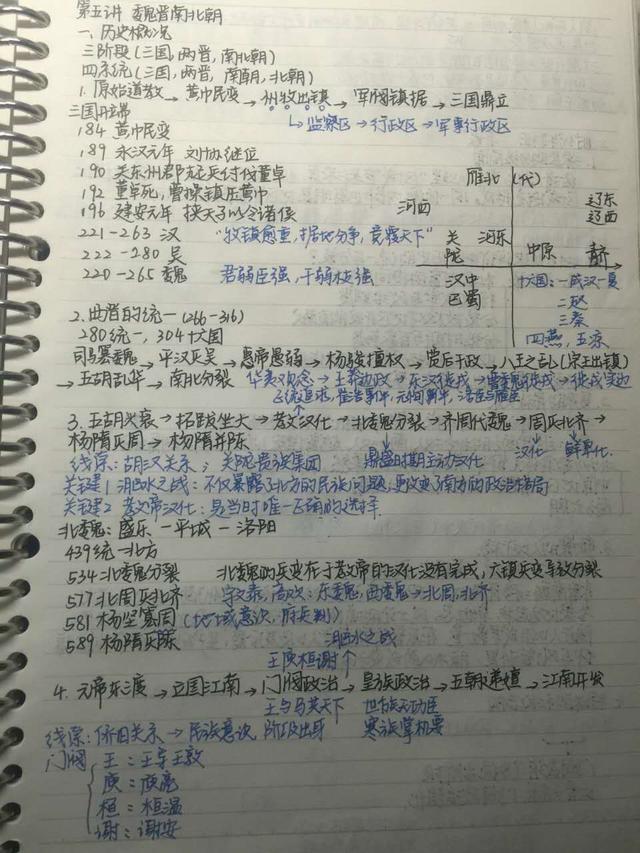 第五讲 魏晋南北朝
一、历史概况
三阶段(三国,两晋,南北朝)
四系统(三国,两晋,南朝,北朝)
1. 原始道教→黄巾民变→州牧出镇→军阀镇据→三国鼎立
三国开端
↳监察区→行政区→军事行政区
184 黄巾民变
189 永汉元年 刘协继位
190 关东州郡起兵讨伐董卓
192 董卓死,曹操镇压黄巾
196 建安元年 挟天子以令诸侯
221-263 汉 "牧镇愈重,据地分争,竞覆天下"
222-280 吴
220-265 魏 君弱臣强,干弱枝强
雁北 (代)
辽东
辽西
河西
关陇 河东
中原
汉中
巴蜀
十六国:一成汉一夏
二赵
三秦
四燕,五凉
2. 西晋的统一(266-316)
280统一,304十六国
司马篡魏→平汉灭吴→惠帝愚弱→杨骏擅权→贾后干政→八王之乱(宗王出镇)
→五胡乱华→南北分裂 华夷观念→王莽边政→东汉徙戎→曹魏徙戎→徙戎实边
3. 五胡兴衰→拓跋坐大→孝文汉化→北魏分裂→齐周代魏→周灭北齐→
杨隋代周→杨隋并陈
线索:胡汉关系;关陇贵族集团 鼎盛时期主动汉化 汉化 鲜卑化
关键1 淝水之战:不仅暴露了北方的民族问题,更改变了南方的政治格局
关键2 孝文帝汉化:是当时唯一正确的选择
北魏:盛乐-平城-洛阳
439统一北方
534北魏分裂 北魏的兵变在于孝文帝的汉化没有完成,六镇兵变导致分裂
577北周灭北齐 宇文泰,高欢:东魏,西魏→北周,北齐
581杨坚篡周(地域意识,府兵制)
589杨隋灭陈 淝水之战
王庾桓谢↑
4. 元帝东渡→立国江南→门阀政治→皇族政治→五朝递嬗→江南开发
王与马共天下 世族无功臣
线索:侨旧关系→民族意识 阶级出身 寒族掌机要
门阀 王:王导王敦
庾:庾亮
桓:桓温
谢:谢安